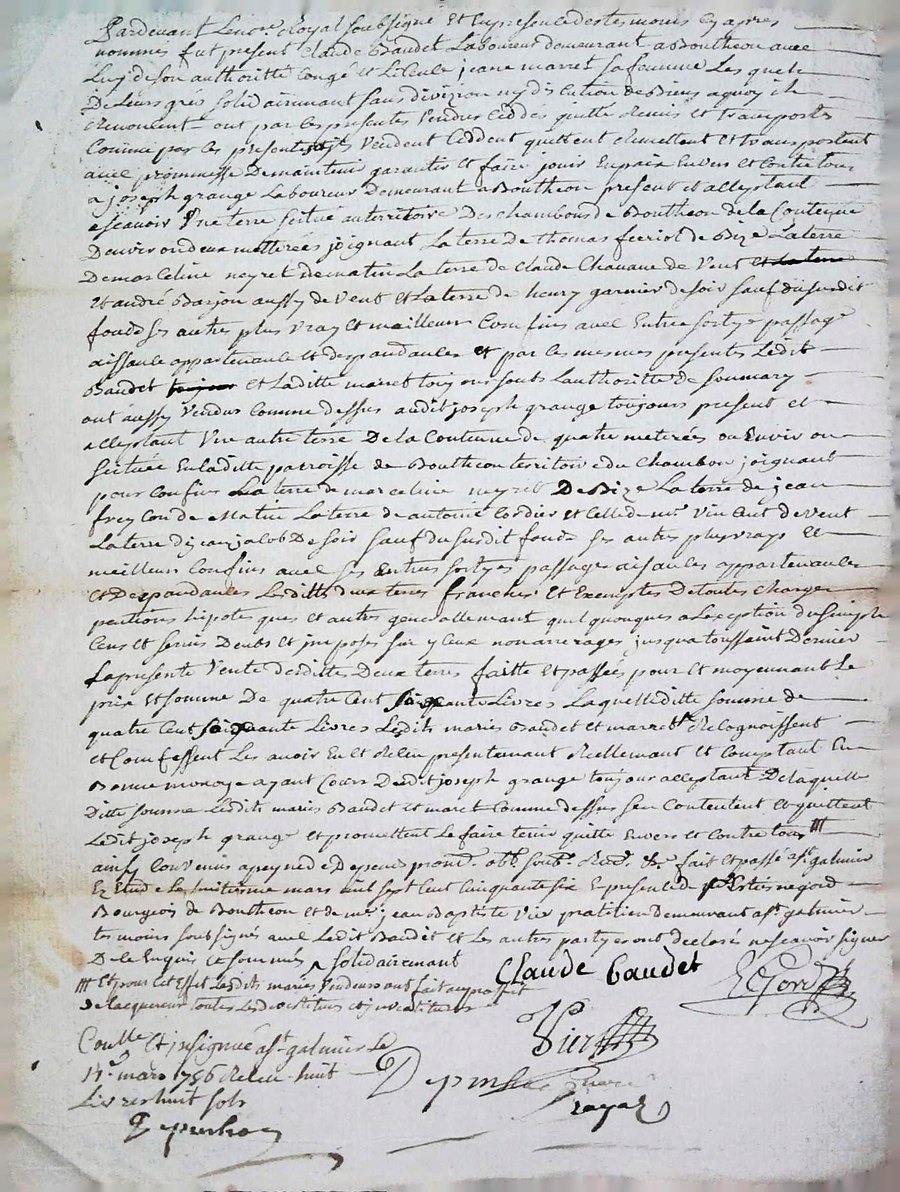 Pardevant Lenore Royal soubsigné Et en presence des temoins cy apres
nommes fut present Claude Baudet Laboureur demeurant a Bouthéon avec
Luy de son authoritté congé et Licence jeane marret sa femme Les quels
De Leurs grés solidairemant sans division ny discution de Biens a quoy ils
Renoncent ont par ces presentes Vendus Ceddés quitté Remis et transportés
Comme par ces presentes Vendent Ceddent quittent Remettent et transportent
avec promesse De maintenir garantir et faire jouir En paix Envers et Contre tous
a joseph grange Laboureur Demeurant a Bouthéon present et acceptant
ascavoir Une terre scitué au territoire Des chambons de Bouthéon de la Contenue
D'environ deux metterées joignant La terre De thomas feriol de Bize La terre
De marceline neyret de matin La terre de Claude Chavane de Vent et La terre
Et andré Barjon aussy de Vent et La terre de henry garnier de soir sauf du susdit
fonds ses autres plus vray et meilleurs Confins avec Entrée sortye passage
aissance appartenance et despandances et par les mesmes presentes Ledit
Baudet toujour et Laditte marret toujours soubs L'authoritté de son mary
ont aussy Vendus Comme dessus audit joseph grange toujours present et
acceptant Une autre terre De la Contenue de quatre meterées ou Environ
scittuée En laditte parroisse de Bouthéon territoire du Chambon joignant
pour Confins La terre de marceline neyret De Bize La terre de jean
freycon de Matin La terre de antoine Cordier et Celle de mr Vincent de Vent
La terre de jean jacob De soir sauf du susdit fonds ses autres plus vrays et
meilleurs Confins avec ses Entrées sortyes passages aisances appartenances
et Despandances Lesdittes deux terres franches Et Exemptes De toutes charges
pentions hipoteques et autres generallemant quelquonques a L'exception du simple
Cens et servis Deubs et imposés sur yceux non arrerages jusqu'a toussaint Dernier
La presente Vente desdittes Deux terres faitte et passée pour et moyennant Le
prix et somme De quatre Cent soixante Livres Laquelleditte somme de
quatre Cent soixante Livres Lesdits mariés Baudet et marret Recognoissent
et Confessent Les avoir Eu et Receu presentemant Reellemant et Comptant En
Bonne monoye ayant Cours Dudit joseph grange toujour acceptant De laquelle
Ditte somme Lesdits mariés Baudet et marret Comme dessus s'en Contentent et quittent
Ledit joseph grange et promettent Le faire tenir quitte Envers et Contre tous ///
ainsy Convenu a peyne de Despens prom. obl. soub. Ren. &c fait et passé a st galmier
Ez Etude Le huitième mars mil sept Cent Cinquante six En presence de
Bourgeois de Bouthéon et de mr jean Baptiste Vier pratitien Demeurant a st galmier
temoins soubsignés avec Ledit Baudet et Les autres partyes ont declaré ne scavoir signer
De ce Enquis et sommés solidairemant
/// Et pour cet Effet Lesdits mariés Vendeurs ont fait au proffit
de lacquereur toutes Les devestitures et investitures
Claude baudet
Vier
Conllé et jnsignué a st galmier Le
mars 1756 Receu huit
Livres huit sols
royal